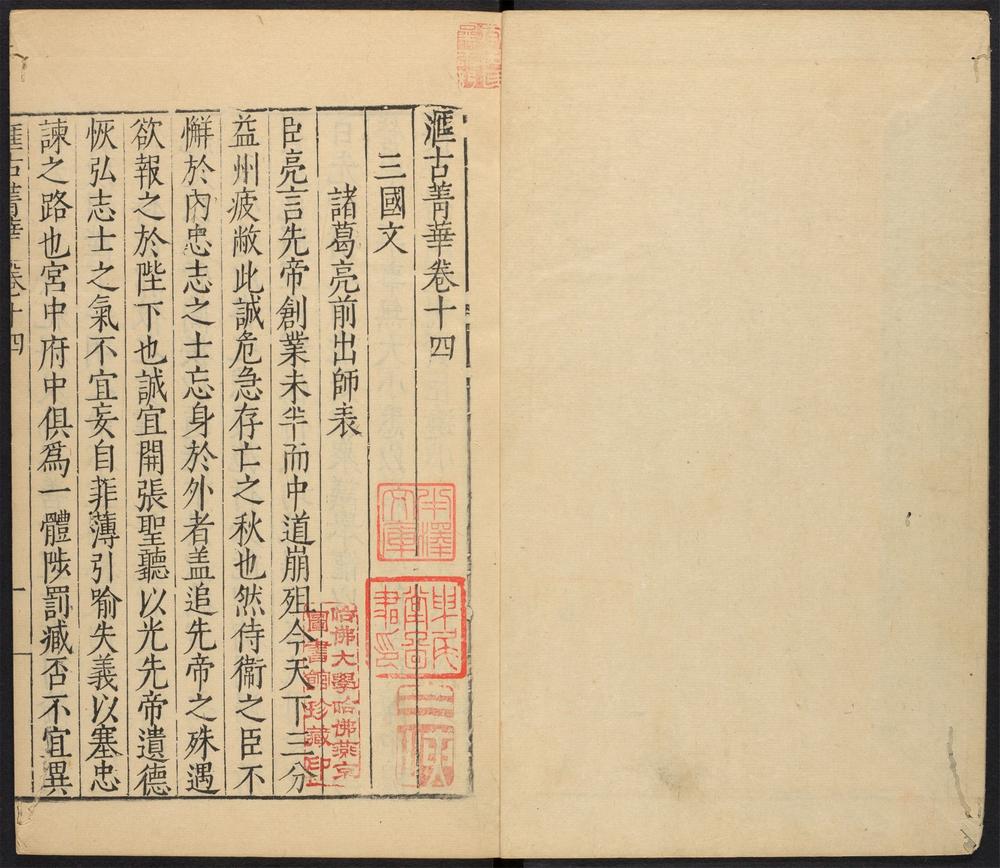 滙古菁華卷十四
三國文
諸葛亮前出師表
臣亮言先帝創業未半而中道崩殂今天下三分
益州疲敝此誠危急存亡之秋也然侍衞之臣不
懈於內忠志之士忘身於外者盖追先帝之殊遇
欲報之於陛下也誠宜開張聖聽以光先帝遺德
恢弘志士之氣不宜妄自菲薄引喻失義以塞忠
諫之路也宮中府中俱爲一體陟罰臧否不宜異
滙古菁華 卷十四
一
哈佛大學哈佛燕京
圖書館珍藏印